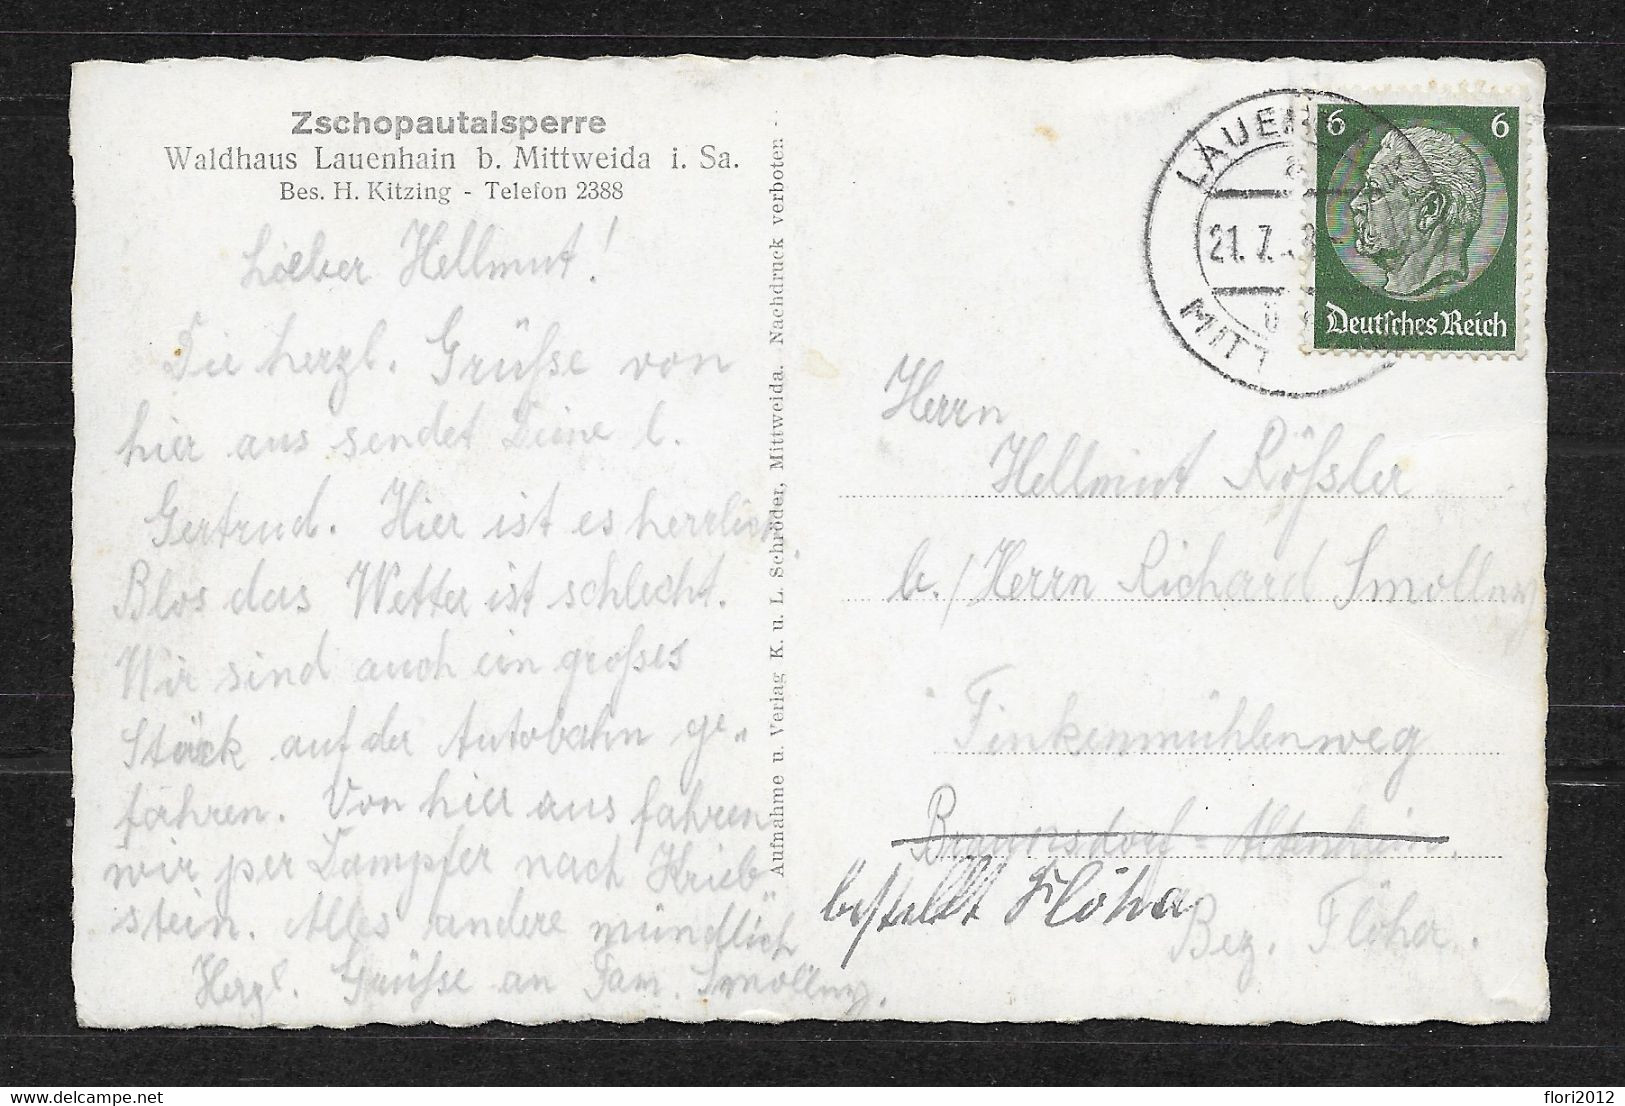 Zschopautalsperre
Waldhaus Lauenhain b. Mittweida i. Sa.
Bes. H. Kitzing - Telefon 2388
Lieber Hellmut!
Die herzl. Grüße von
hier aus sendet Deine l.
Gertrud. Hier ist es herrlich.
Blos das Wetter ist schlecht.
Wir sind auch ein großes
Stück auf der Autobahn ge„
fahren. Von hier aus fahren
wir per Dampfer nach Krieb„
stein. Alles andere mündlich
Herzl. Grüße an Fam. Smollny.
Aufnahme u. Verlag K. u. L. Schröder, Mittweida. Nachdruck verboten
LAUEN
21. 7. 3
MITT
6 6
Deutsches Reich
Herrn
Hellmut Rößler
b./Herrn Richard Smollny
Finkenmühlenweg
Braunsdorf-Altenhain.
bestellt Flöha
Bez. Flöha.
flori2012